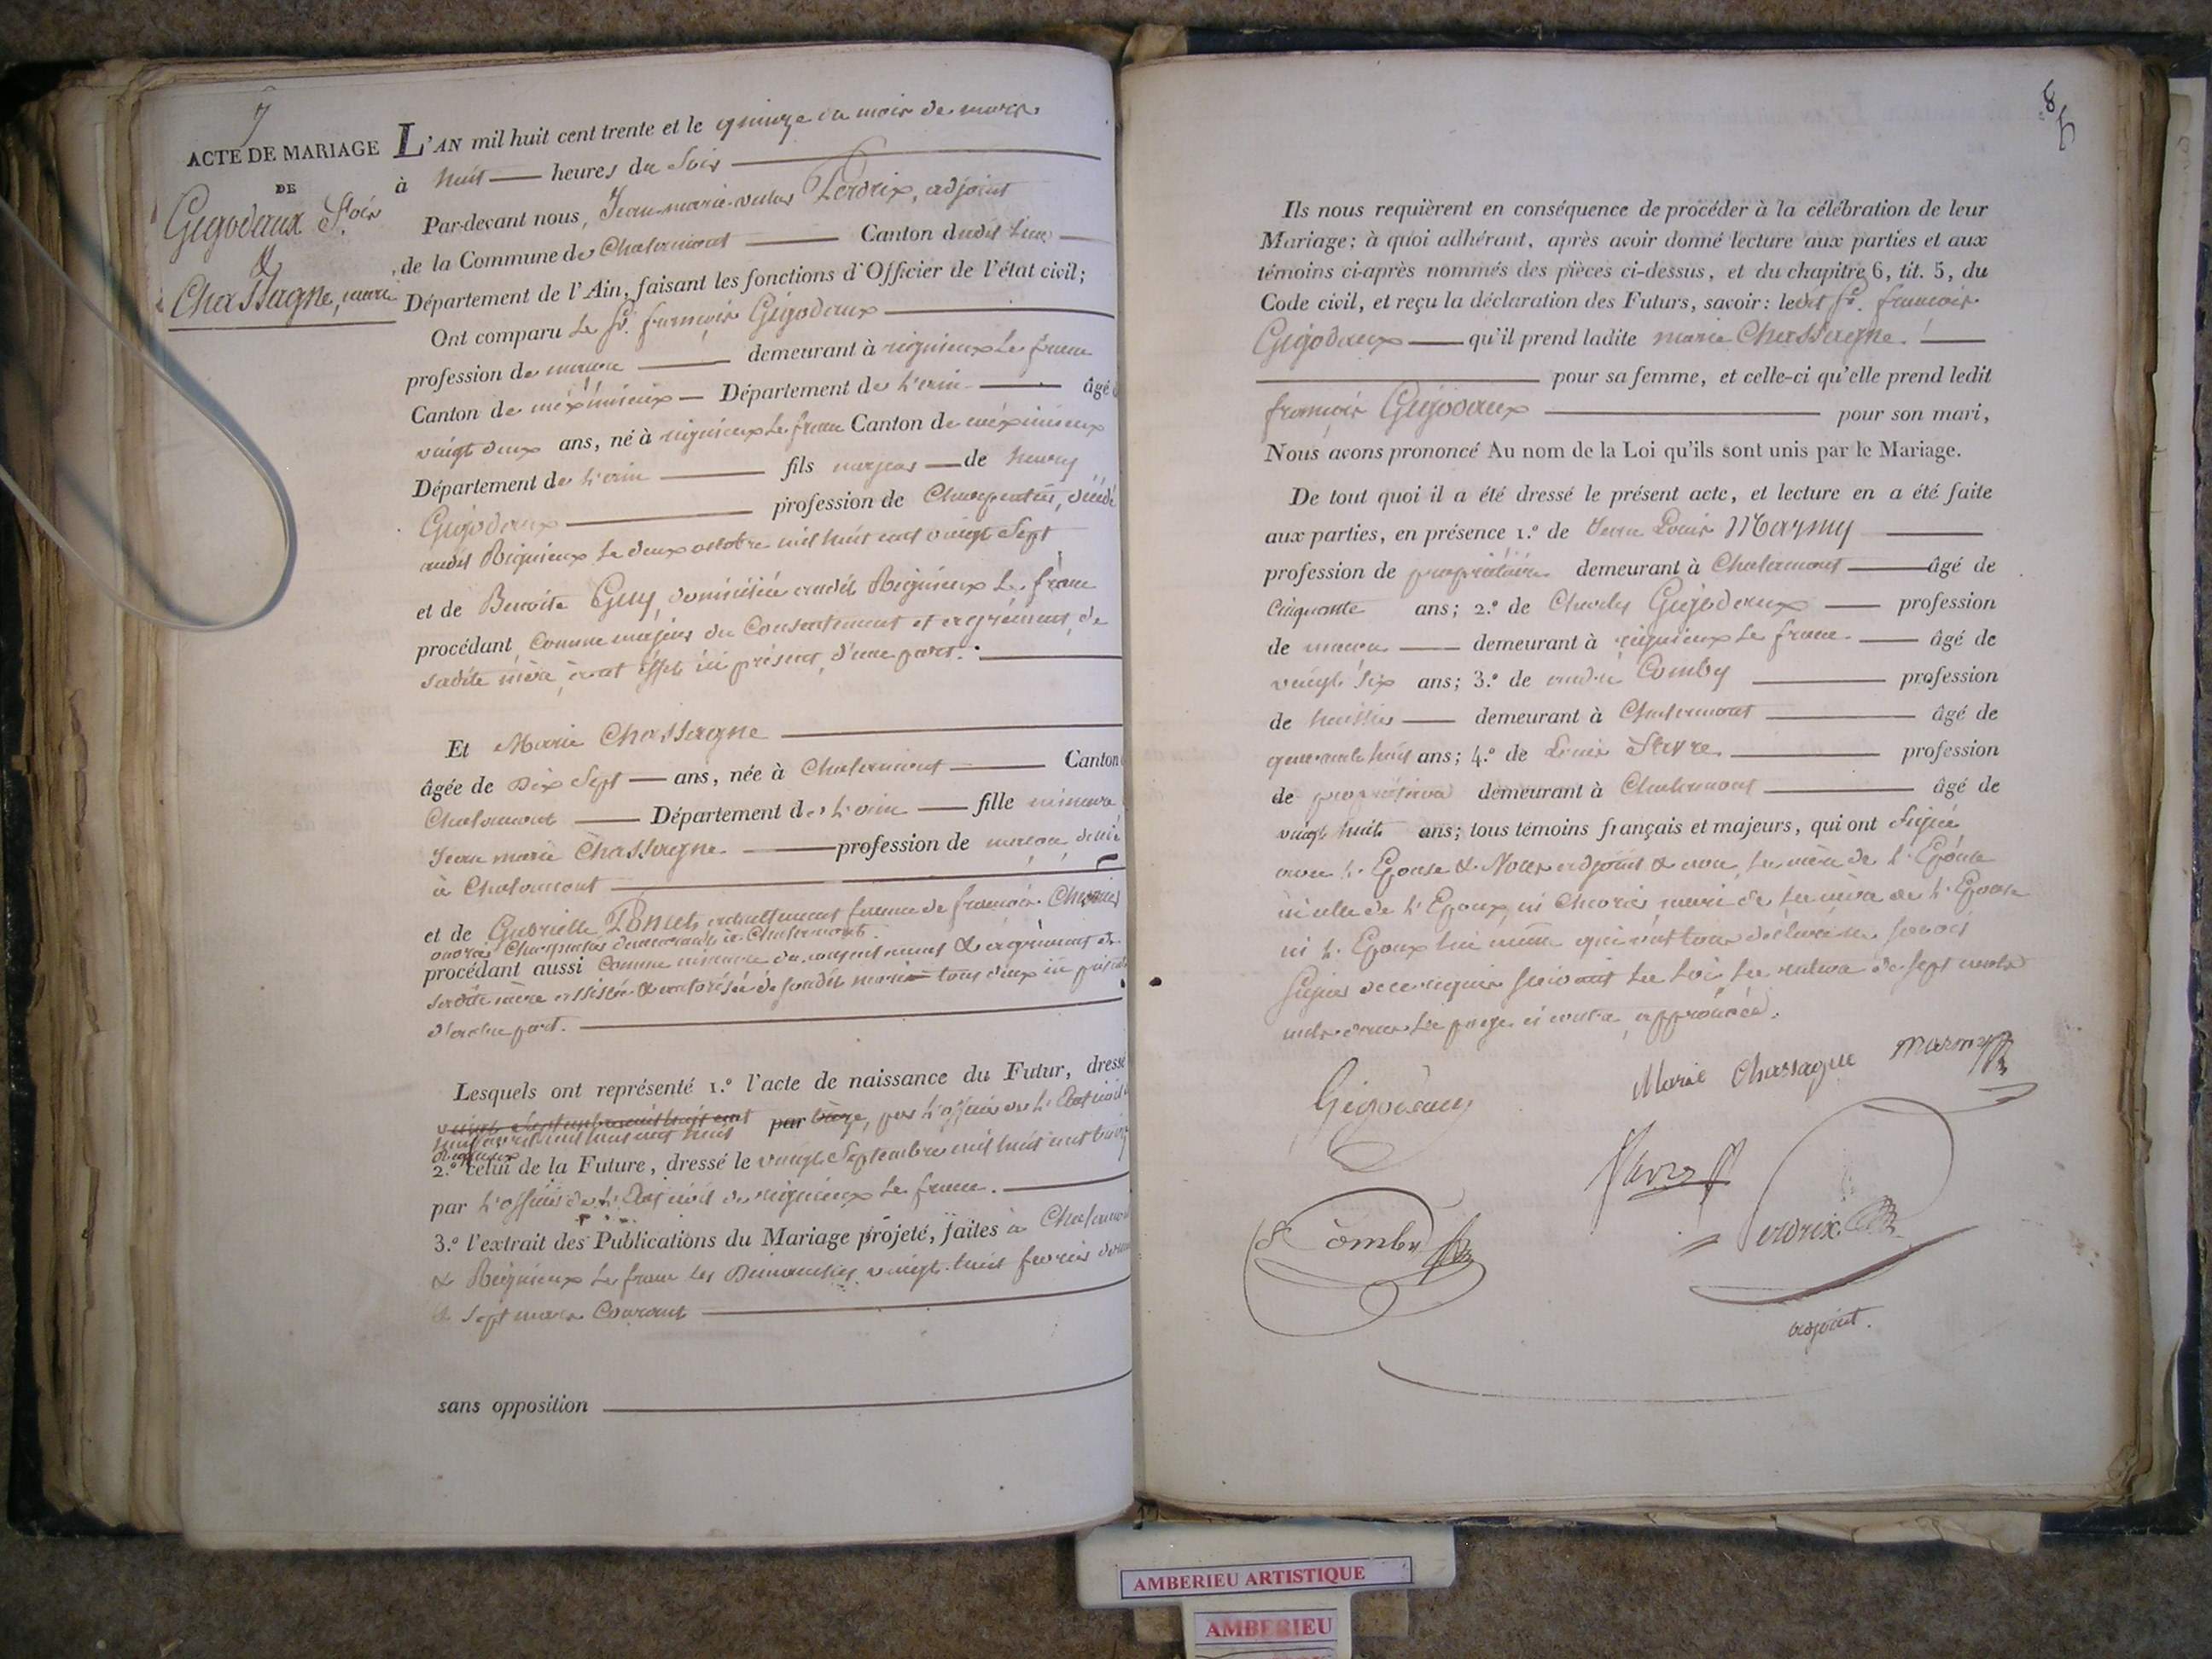 7
ACTE DE MARIAGE
DE
Gigodeaux f.ois
&
Chassagne, marie
L'AN mil huit cent trente et le quinze du mois de mars
à huit heures du soir
Par-devant nous, Jean-marie Perdrix, adjoint
de la Commune de Chalamont Canton dudit lieu
Département de l'Ain, faisant les fonctions d'Officier de l'état civil;
Ont comparu Le Sr. françois Gigodeaux
profession de demeurant à rignieux Le franc
Canton de méximieux Département de L'ain âgé
vingt deux ans, né à rignieux Le franc Canton de méximieux
Département de L'ain fils majeur de
Gigodeaux profession de Charpentier, décédé
audit Rignieux Le deux octobre mil huit cent vingt Sept
et de Benoite Guy, domiciliée audit Rignieux Le franc
procédant Comme majeur du Consentement et agrément de
sadite mère, à cet effet ici présent, d'une part.
Et Marie Chassagne
âgée de Dix Sept ans, née à Chalamont Canton
Chalamont Département de L'ain fille mineure
Jean marie Chassagne profession de
à Chalamont
et de Gabrielle Poncet, actuellement femme de françois
ouvrier Charpentier demeurant à Chalamont.
procédant aussi Comme mineure du consentement & agrément de
sadite mère assistée & autorisée de sondit mari tous deux ici présents
d'autre part.
Lesquels ont représenté 1.º l'acte de naissance du Futur, dressé
par par L'officier de L'Etat civil
Rignieux
2.º celui de la Future, dressé le vingt Septembre mil huit cent
par L'officier de L'Etat civil de rignieux Le franc.
3.º l'extrait des Publications du Mariage projeté, faites à Chalamont
& Rignieux Le franc les Dimanches vingt-huit février
& sept mars Courant
sans opposition
8
Ils nous requièrent en conséquence de procéder à la célébration de leur
Mariage; à quoi adhérant, après avoir donné lecture aux parties et aux
témoins ci-après nommés des pièces ci-dessus, et du chapitre 6, tit. 5, du
Code civil, et reçu la déclaration des Futurs, savoir: ledit Sr. françois
Gigodeaux qu'il prend ladite marie Chassagne.
pour sa femme, et celle-ci qu'elle prend ledit
françois Gigodeaux pour son mari,
Nous avons prononcé Au nom de la Loi qu'ils sont unis par le Mariage.
De tout quoi il a été dressé le présent acte, et lecture en a été faite
aux parties, en présence 1.º de Jean Louis Marmy
profession de propriétaire demeurant à Chalamont âgé de
Cinquante ans; 2.º de Charles Gigodeaux profession
de demeurant à rignieux Le franc. âgé de
vingt Six ans; 3.º de andré Comby profession
de huissier demeurant à Chalamont âgé de
quarante huit ans; 4.º de Louis profession
de propriétaire demeurant à Chalamont âgé de
vingt huit ans; tous témoins français et majeurs, qui ont Signé
avec L'Epouse & Nous adjoint & non La mère de L'Epouse
ni celle de L'Epoux, ni mari de La mère de L'Epouse
ni L'Epoux Lui même qui ont tous déclaré ne savoir
signer de ce requis suivant La Loi. La rature de sept mots
nuls dans La page ci contre, approuvée.
Gigodeaux
Marie Chassagne
Marmy
Comby
Perdrix
adjoint.
AMBERIEU ARTISTIQUE
AMBERIEU